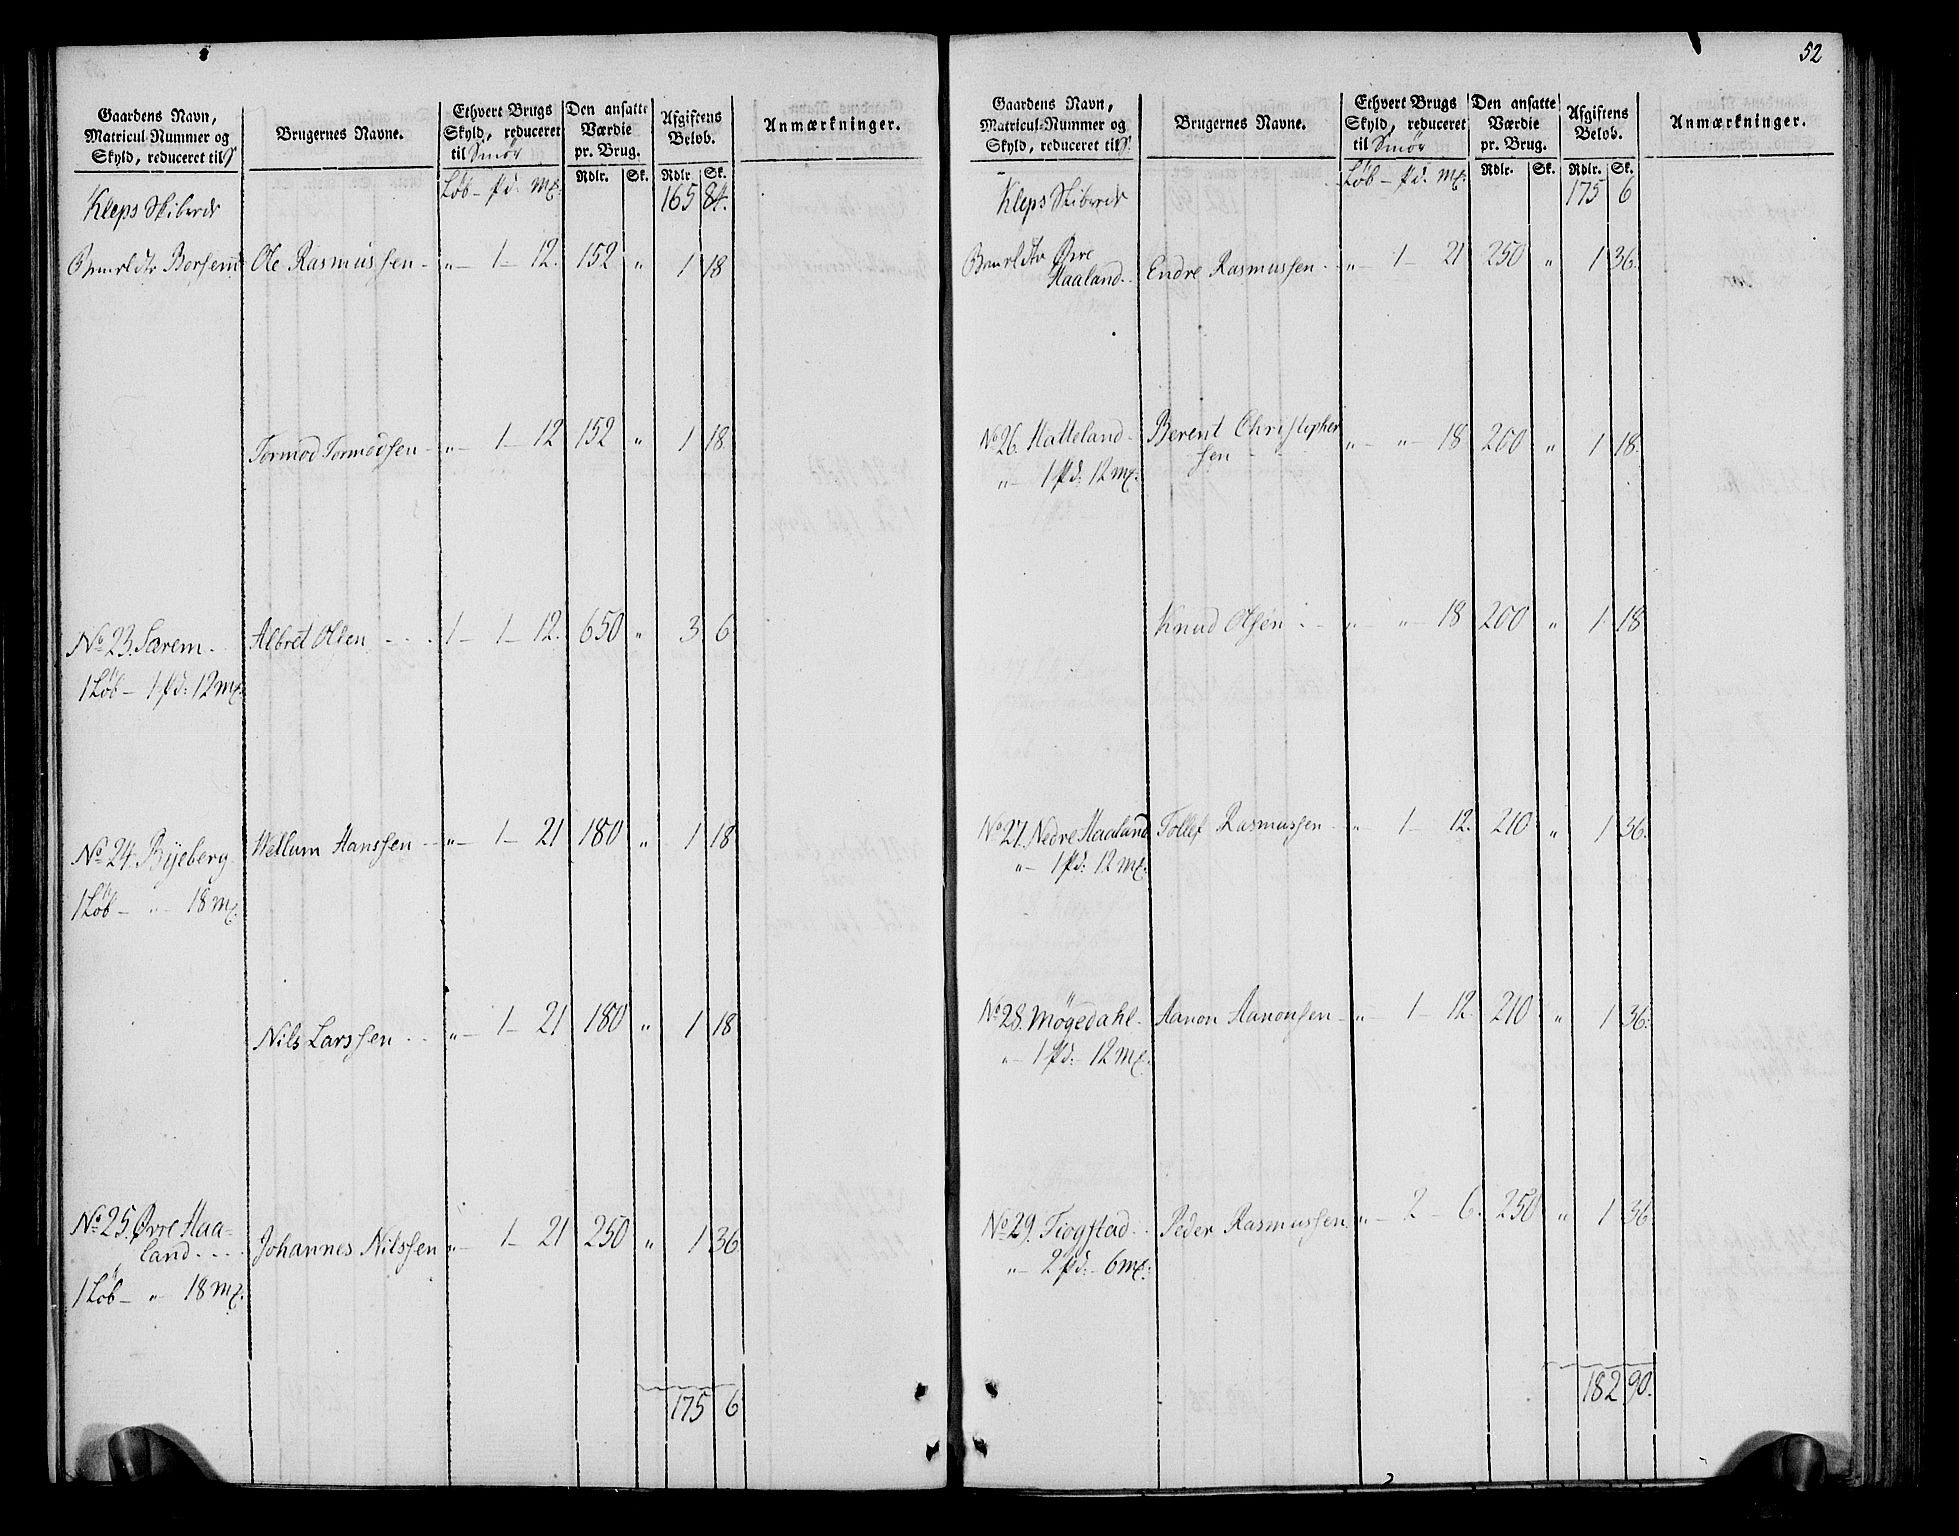 Gaardens Navn, Matricul-Nummer og Skyld, reduceret til S. | Brugernes Navne. | Ethvert Brugs Skyld, reduceret til Smör | Den ansatte Værdie pr. Brug. | Afgiftens Beløb. | Anmærkninger.
Løb — pd. mk. | Rdlr. | Sk. | Rdlr. | Sk.
Kleps Skiberede | 165 | 84.
Borsem | Ole Rasmussen - | „ — 1 — 12. | 152 | „ | 1 | 18
Tormod Tormodsen - | „ — 1 — 12 | 152 | „ | 1 | 18.
No 23. Særem. | Albret Olsen | 1 — 1 — 12. | 650 | „ | 3 | 6
1 Løb — 1 pd: 12 mk.
No 24. Byeberg | Wellum Hanssen - | „ — 1 — 21 | 180 | „ | 1 | 18
1 Løb — „ — 18 mk.
Nils Larssen - - | „ — 1 — 21 | 180 | „ | 1 | 18
No 25. Øvre Haa-
land | Johannes Nilssen | „ — 1 — 21 | 250 | „ | 1 | 36
1 Løb — „ 18 mk.
175 | 6
52
Gaardens Navn, Matricul-Nummer og Skyld, reduceret til S. | Brugernes Navne. | Ethvert Brugs Skyld, reduceret til Smör | Den ansatte Værdie pr. Brug. | Afgiftens Beløb. | Anmærkninger.
Løb — pd. mk. | Rdlr. | Sk. | Rdlr. | Sk.
Kleps Skiberede | 175 | 6
Øvre
Haaland | Endre Rasmussen - | „ — 1 — 21 | 250 | „ | 1 | 36.
No 26. Hatteland | Berent Christopher
sen | „ — „ — 18 | 200 | „ | 1 | 18.
„ — 1 pd: 12 mk.
Knud Olsen | „ — „ — 18 | 200 | „ | 1 | 18
No 27. Nedre Haaland | Tollef Rasmussen | „ — 1 — 12. | 210 | „ | 1 | 36.
„ — 1 pd: 12 mk.
No 28. Møgedahl. | Aanon Aanonsen - | „ — 1 — 12. | 210 | „ | 1 | 36.
„ — 1 pd: — 12 mk.
No 29. Tiogstad | Peder Rasmussen | „ — 2 — 6. | 250 | „ | 1 | 36
„ — 2 pd: — 6 mk.
182 | 90.